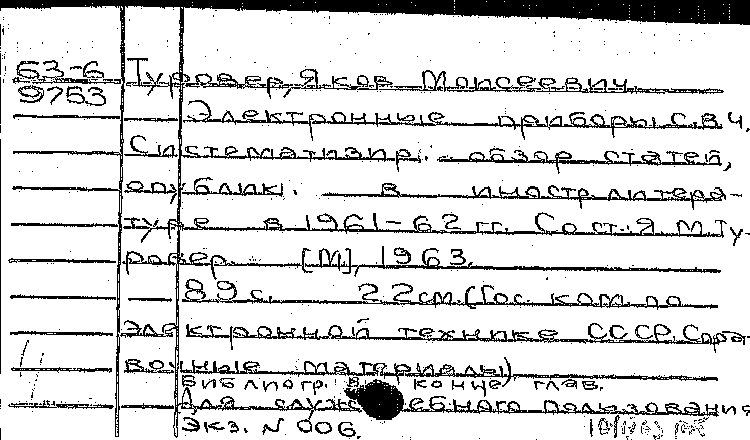 63-6 Туровер, Яков Моисеевич.
9753
Электронные приборы С.В.Ч.
Систематизир. обзор статей,
опублик. в иностр. литера-
туре в 1961-62 гг. Сост. Я. М. Ту-
ровер. [М], 1963.
89 с. 22 см. (Гос. ком. по
электронной технике СССР. Спра-
вочные материалы)
Библиогр. в конце глав.
Для служебного пользования
Экз. N 006.